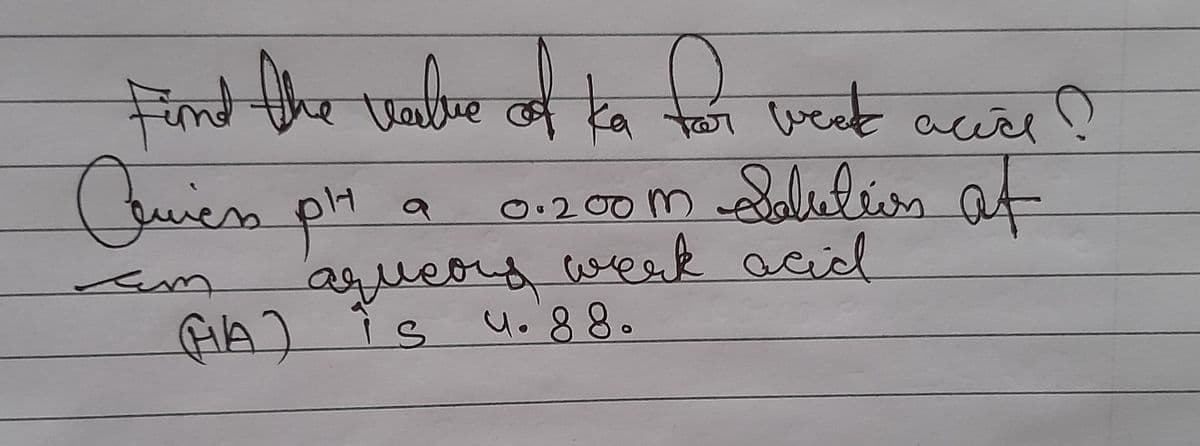 Find the value of ka for week acid ?
Given pH a 0.200 m Solution of
an aqueous week acid
(HA) is 4.88.